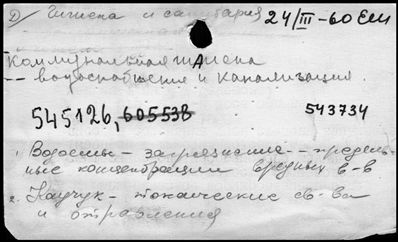 Д/ Гигиена и санитария 24/III-60 ЕМ
Коммунальная гигиена
-- водоснабжение и канализация.
545126, 605538 543734
1. Водоемы - загрязнение - предель-
ные концентрации вредных в-в
2. Каучук - токсические св-ва
и отравления